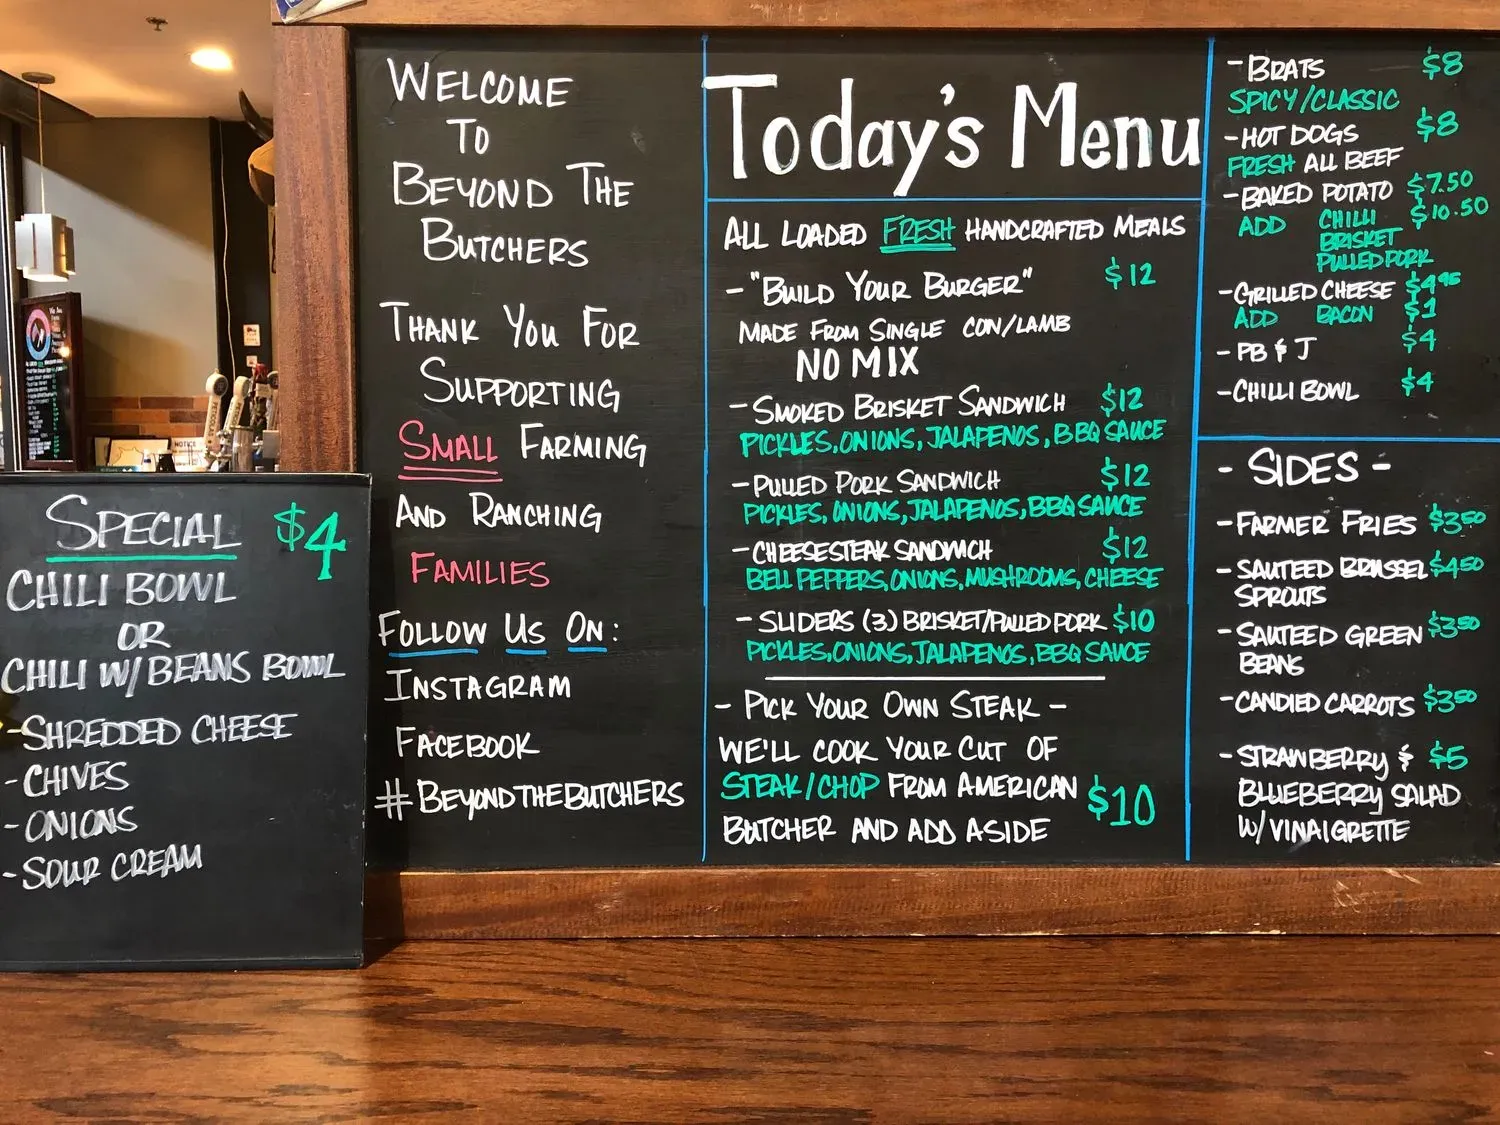 SPECIAL $4
CHILI BOWL
OR
CHILI W/BEANS BOWL
-SHREDDED CHEESE
-CHIVES
-ONIONS
-SOUR CREAM
WELCOME
TO
BEYOND THE
BUTCHERS
THANK YOU FOR
SUPPORTING
SMALL FARMING
AND RANCHING
FAMILIES
FOLLOW US ON:
INSTAGRAM
FACEBOOK
#BEYONDTHEBUTCHERS
Today's Menu
ALL LOADED FRESH HANDCRAFTED MEALS
- "BUILD YOUR BURGER" $12
MADE FROM SINGLE COW/LAMB
NO MIX
- SMOKED BRISKET SANDWICH $12
PICKLES, ONIONS, JALAPENOS, BBQ SAUCE
- PULLED PORK SANDWICH $12
PICKLES, ONIONS, JALAPENOS, BBQ SAUCE
- CHEESESTEAK SANDWICH $12
BELL PEPPERS, ONIONS, MUSHROOMS, CHEESE
- SLIDERS (3) BRISKET/PULLED PORK $10
PICKLES, ONIONS, JALAPENOS, BBQ SAUCE
- PICK YOUR OWN STEAK -
WE'LL COOK YOUR CUT OF
STEAK/CHOP FROM AMERICAN $10
BUTCHER AND ADD ASIDE
- BRATS $8
SPICY/CLASSIC
- HOT DOGS $8
FRESH ALL BEEF
- BAKED POTATO $7.50
ADD CHILLI $10.50
BRISKET
PULLED PORK
- GRILLED CHEESE $4.95
ADD BACON $1
- PB & J $4
- CHILLI BOWL $4
- SIDES -
- FARMER FRIES $3.50
- SAUTEED BRUSSEL $4.50
SPROUTS
- SAUTEED GREEN $3.50
BEANS
- CANDIED CARROTS $3.50
- STRAWBERRY & $5
BLUEBERRY SALAD
W/ VINAIGRETTE
NOTICE